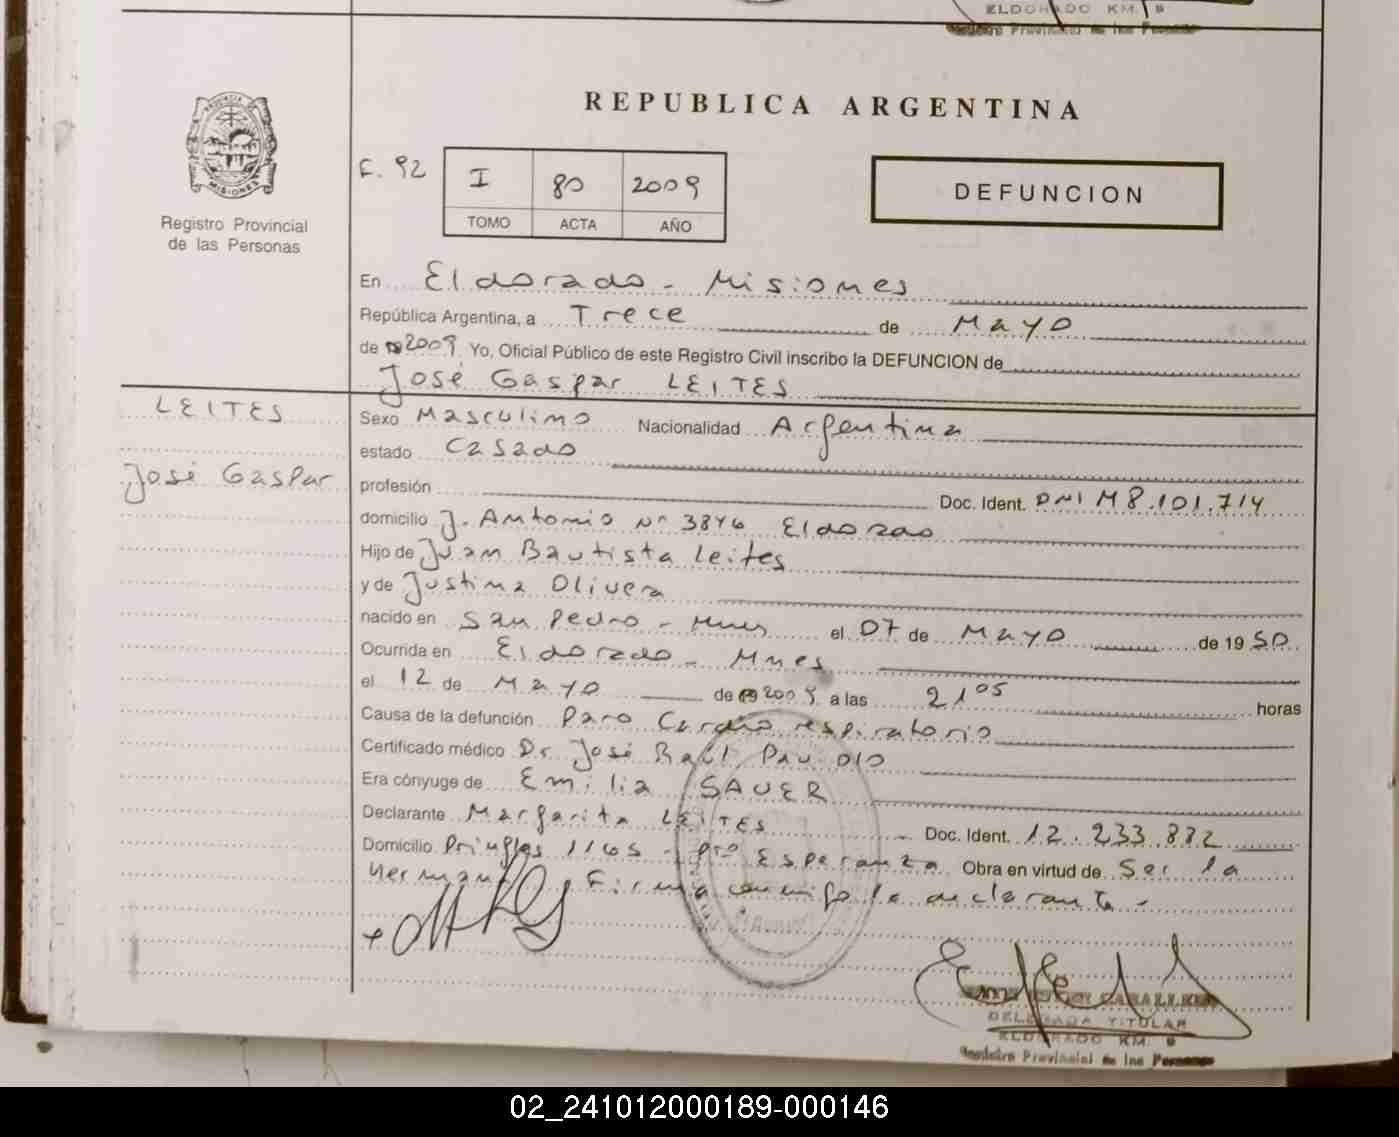 ELDORADO KM. 9
Registro Provincial de las Personas
REPUBLICA ARGENTINA
F. 92
I 80 2009
TOMO ACTA AÑO
DEFUNCION
PROVINCIA DE
MISIONES
Registro Provincial
de las Personas
En Eldorado - Misiones
República Argentina, a Trece de Mayo
de 2009 Yo, Oficial Público de este Registro Civil inscribo la DEFUNCION de
José Gaspar LEITES
LEITES
José Gaspar
Sexo Masculino Nacionalidad Argentina
estado Casado
profesión Doc. Ident. DNI M8.101.714
domicilio J. Antonio Nº 3846 Eldorado
Hijo de Juan Bautista Leites
y de Justina Olivera
nacido en San Pedro - Mnes el 07 de Mayo de 1950
Ocurrida en Eldorado - Mnes
el 12 de Mayo de 2009 a las 21 05 horas
Causa de la defunción Paro Cardio respiratorio
Certificado médico Dr. José Raúl
Era cónyuge de Emilia SAUER
Declarante Margarita LEITES Doc. Ident. 12.233.882
Domicilio Pringles 1165 - Pto Esperanza Obra en virtud de Ser la
hermana Firma conmigo la declarante -
CABALLERO
DELEGADA TITULAR
ELDORADO KM. 9
Registro Provincial de las Personas
02_241012000189-000146